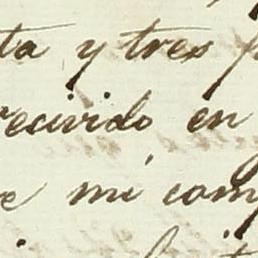 ta y tres p
recivido en
e mi com